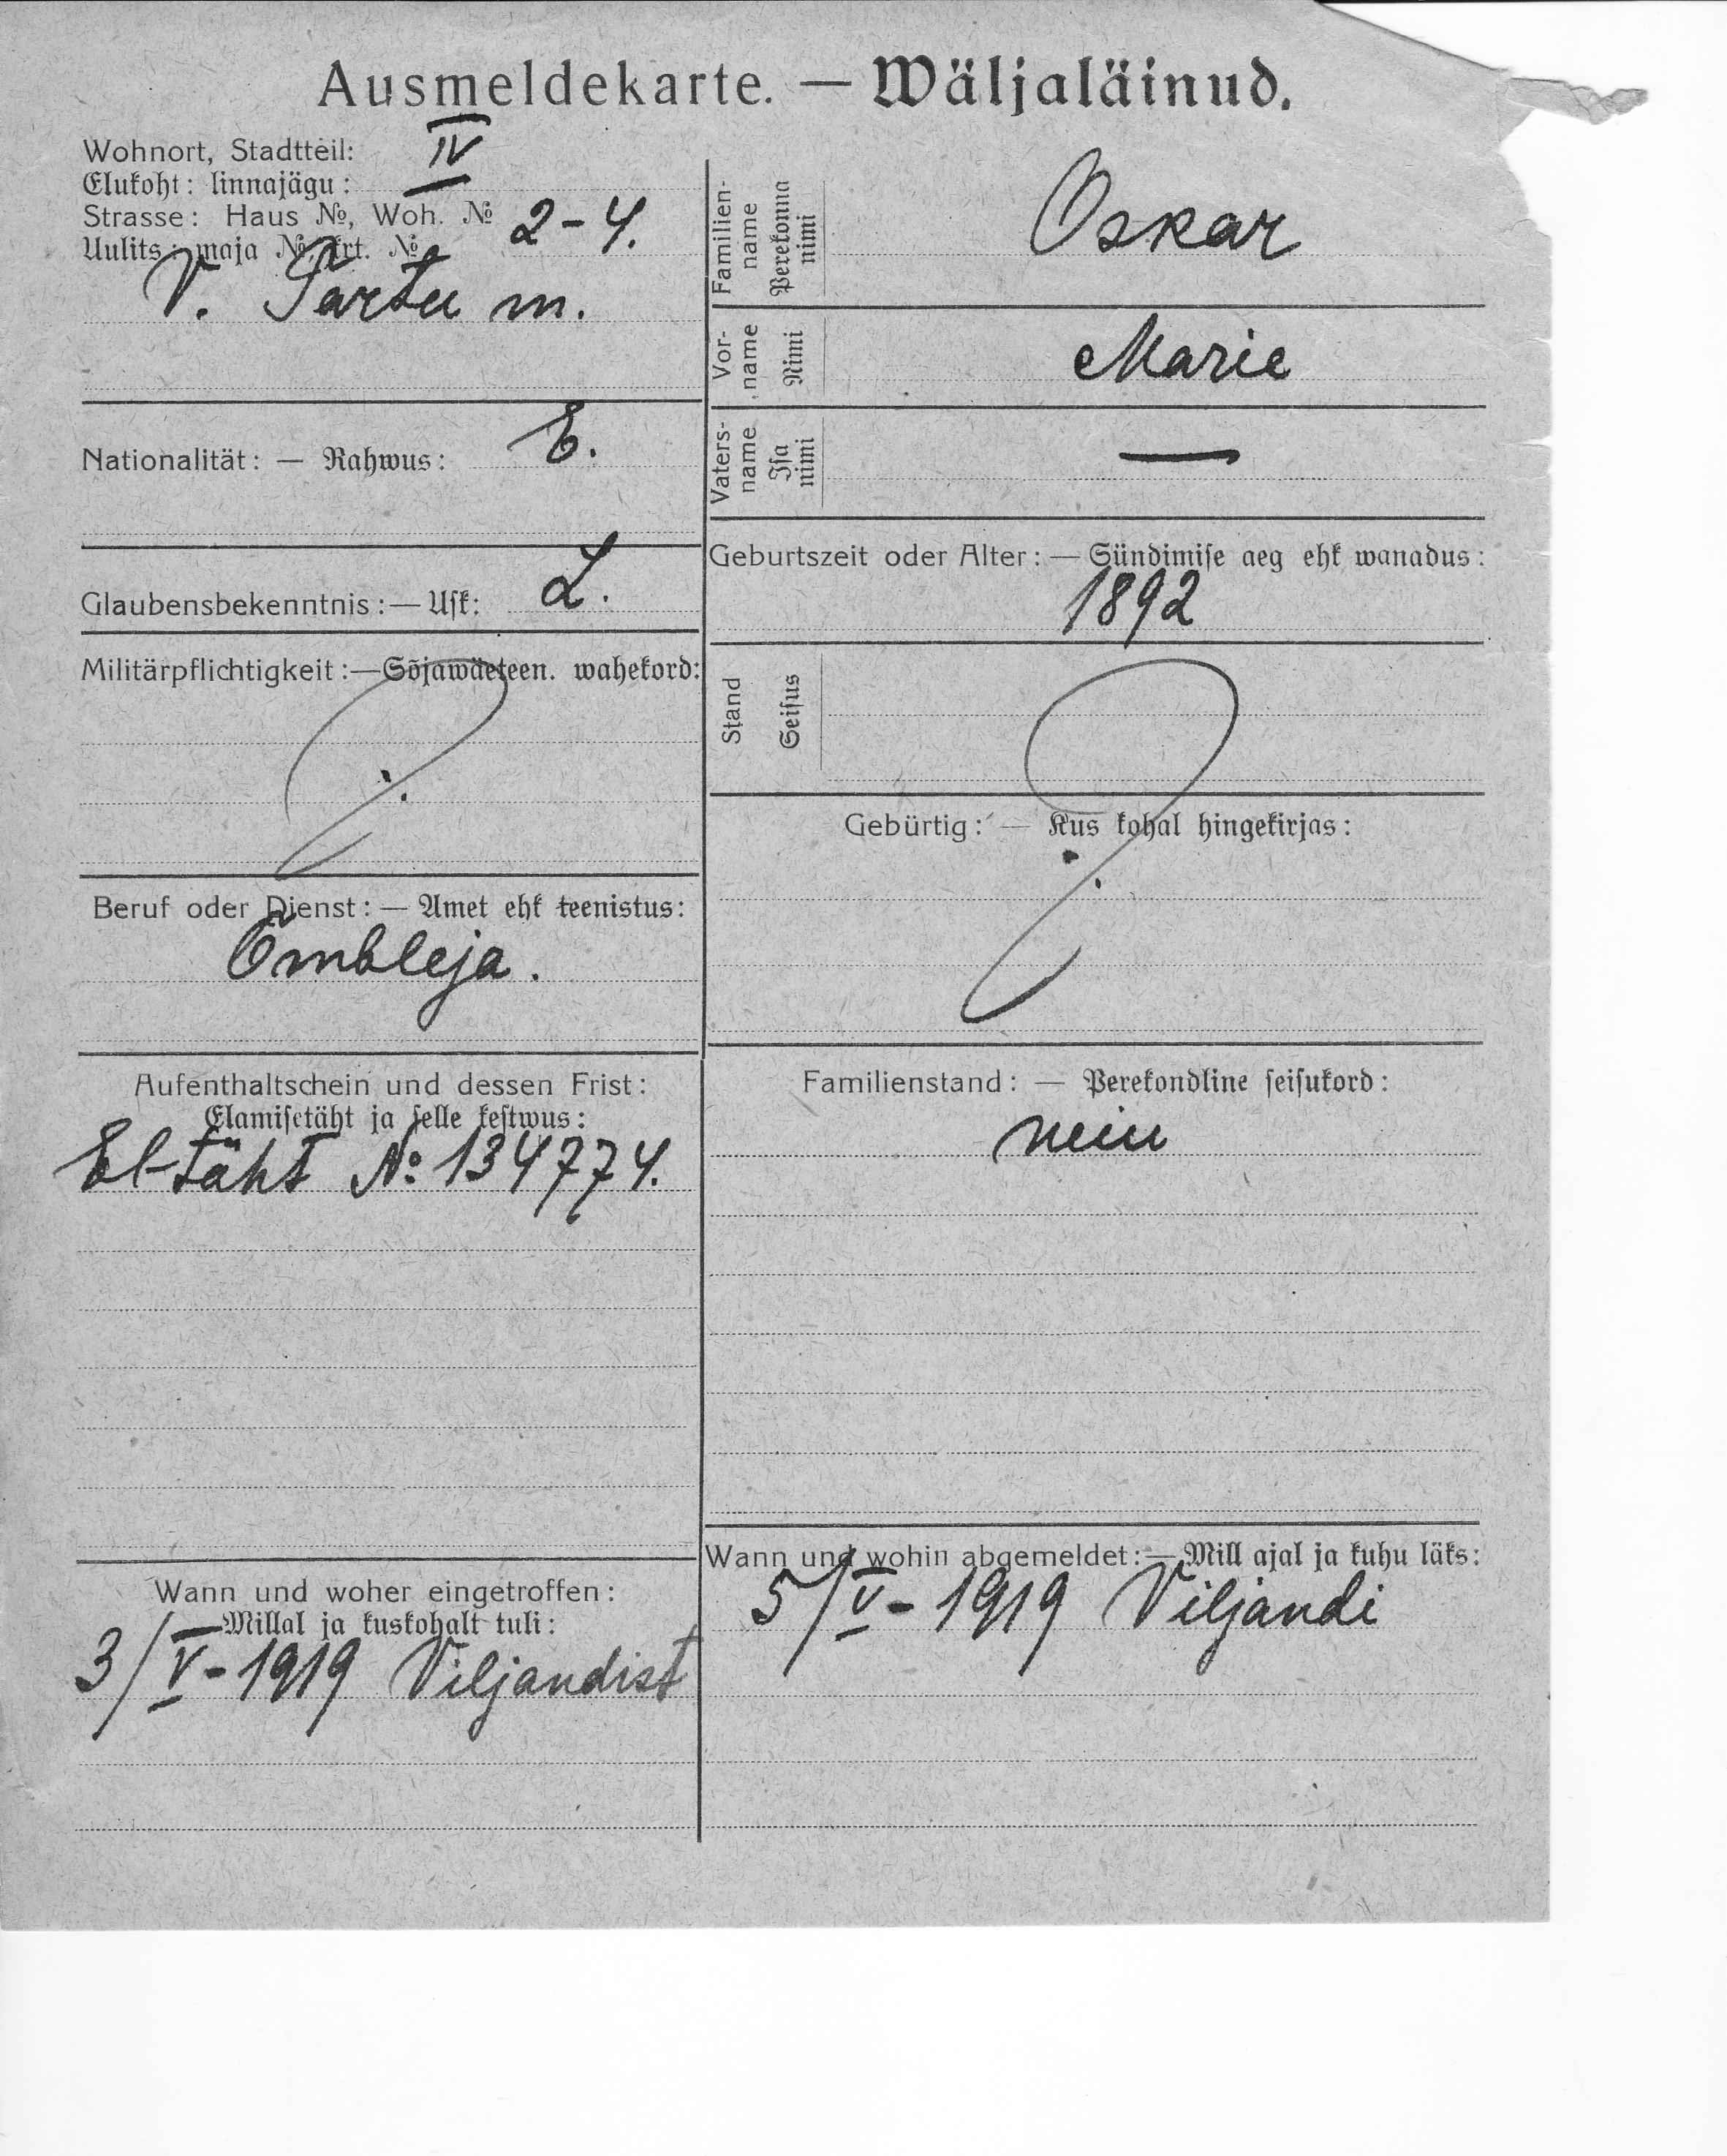 Ausmeldekarte. — Wäljaläinud.
Wohnort, Stadtteil: IV
Elukoht: linnajägu:
Strasse: Haus №, Woh. № 2-4.
Uulits: maja № krt. №
V. Tartu m.
Nationalität: — Rahwus: E.
Glaubensbekenntnis: — Usk: L.
Militärpflichtigkeit: — Sõjawäeteen. wahekord:
Beruf oder Dienst: — Amet ehk teenistus:
Õmbleja.
Aufenthaltschein und dessen Frist:
Elamisetäht ja selle kestwus:
El-täht №: 134774.
Wann und woher eingetroffen:
Millal ja kuskohalt tuli:
3/V-1919 Viljandist
Familien-
name
Perekonna
nimi
Oskar
Vor-
name
Nimi
Marie
Vaters-
name
Isa
nimi
—
Geburtszeit oder Alter: — Sündimise aeg ehk wanadus:
1892
Stand
Seisus
Gebürtig: — Kus kohal hingekirjas:
Familienstand: — Perekondline seisukord:
neiu
Wann und wohin abgemeldet: — Mill ajal ja kuhu läks:
5/V-1919 Viljandi